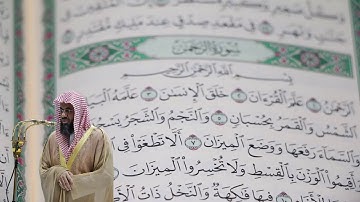 وَنَهَرٍ ۝ فِى مَقْعَدِ صِدْقٍ عِندَ مَلِيكٍ
سُورَةُ الرَّحْمَٰن
بِسْمِ اللَّهِ الرَّحْمَٰنِ الرَّحِيمِ
الرَّحْمَٰنُ ۝١ عَلَّمَ الْقُرْءَانَ ۝٢ خَلَقَ الْإِنسَٰنَ ۝٣ عَلَّمَهُ
الشَّمْسُ وَالْقَمَرُ بِحُسْبَانٍ ۝٥ وَالنَّجْمُ وَالشَّجَرُ
وَالسَّمَاءَ رَفَعَهَا وَوَضَعَ الْمِيزَانَ ۝٧ أَلَّا تَطْغَوْا فِى
وَأَقِيمُوا الْوَزْنَ بِالْقِسْطِ وَلَا تُخْسِرُوا الْمِيزَانَ
فِيهَا فَٰكِهَةٌ وَالنَّخْلُ ذَاتُ